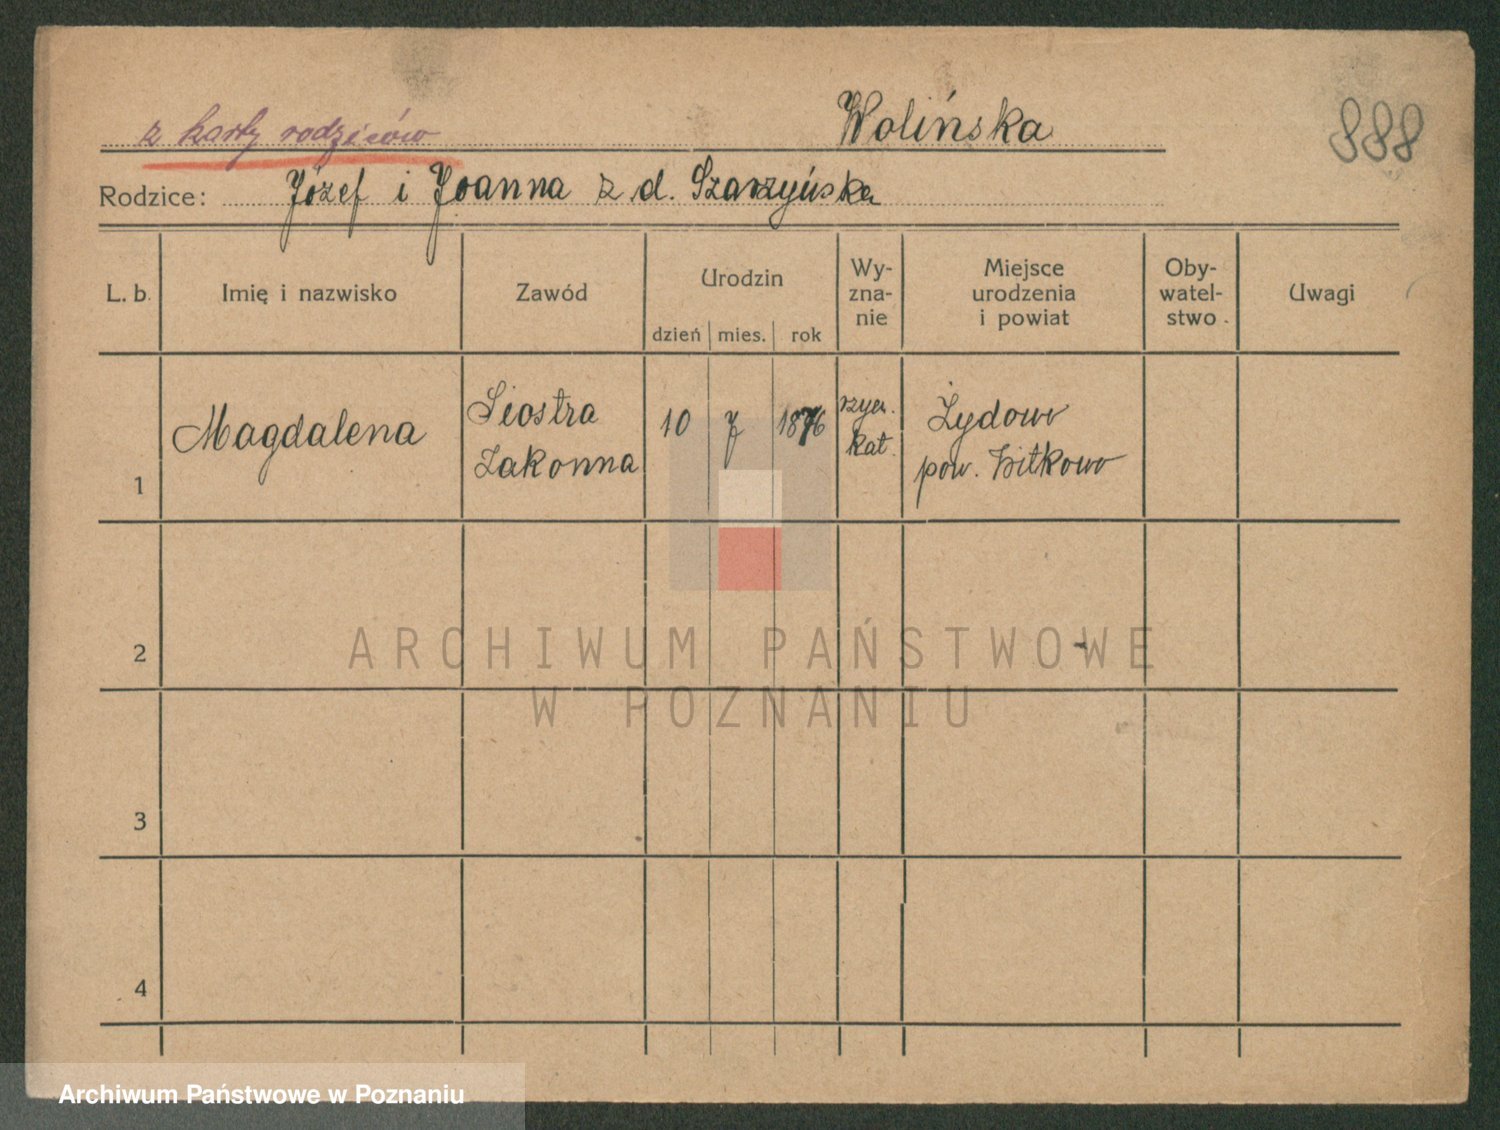 z karty rodziców
Wolińska
888
Rodzice: Józef i Joanna z d. Szarzyńska
L. b. Imię i nazwisko Zawód Urodzin Wy- zna- nie Miejsce urodzenia i powiat Oby- watel- stwo Uwagi
dzień mies. rok
1 Magdalena Siostra Zakonna 10 7 1876 rzym. kat. Żydowo pow. Witkowo
2
3
4
ARCHIWUM PAŃSTWOWE
W POZNANIU
Archiwum Państwowe w Poznaniu